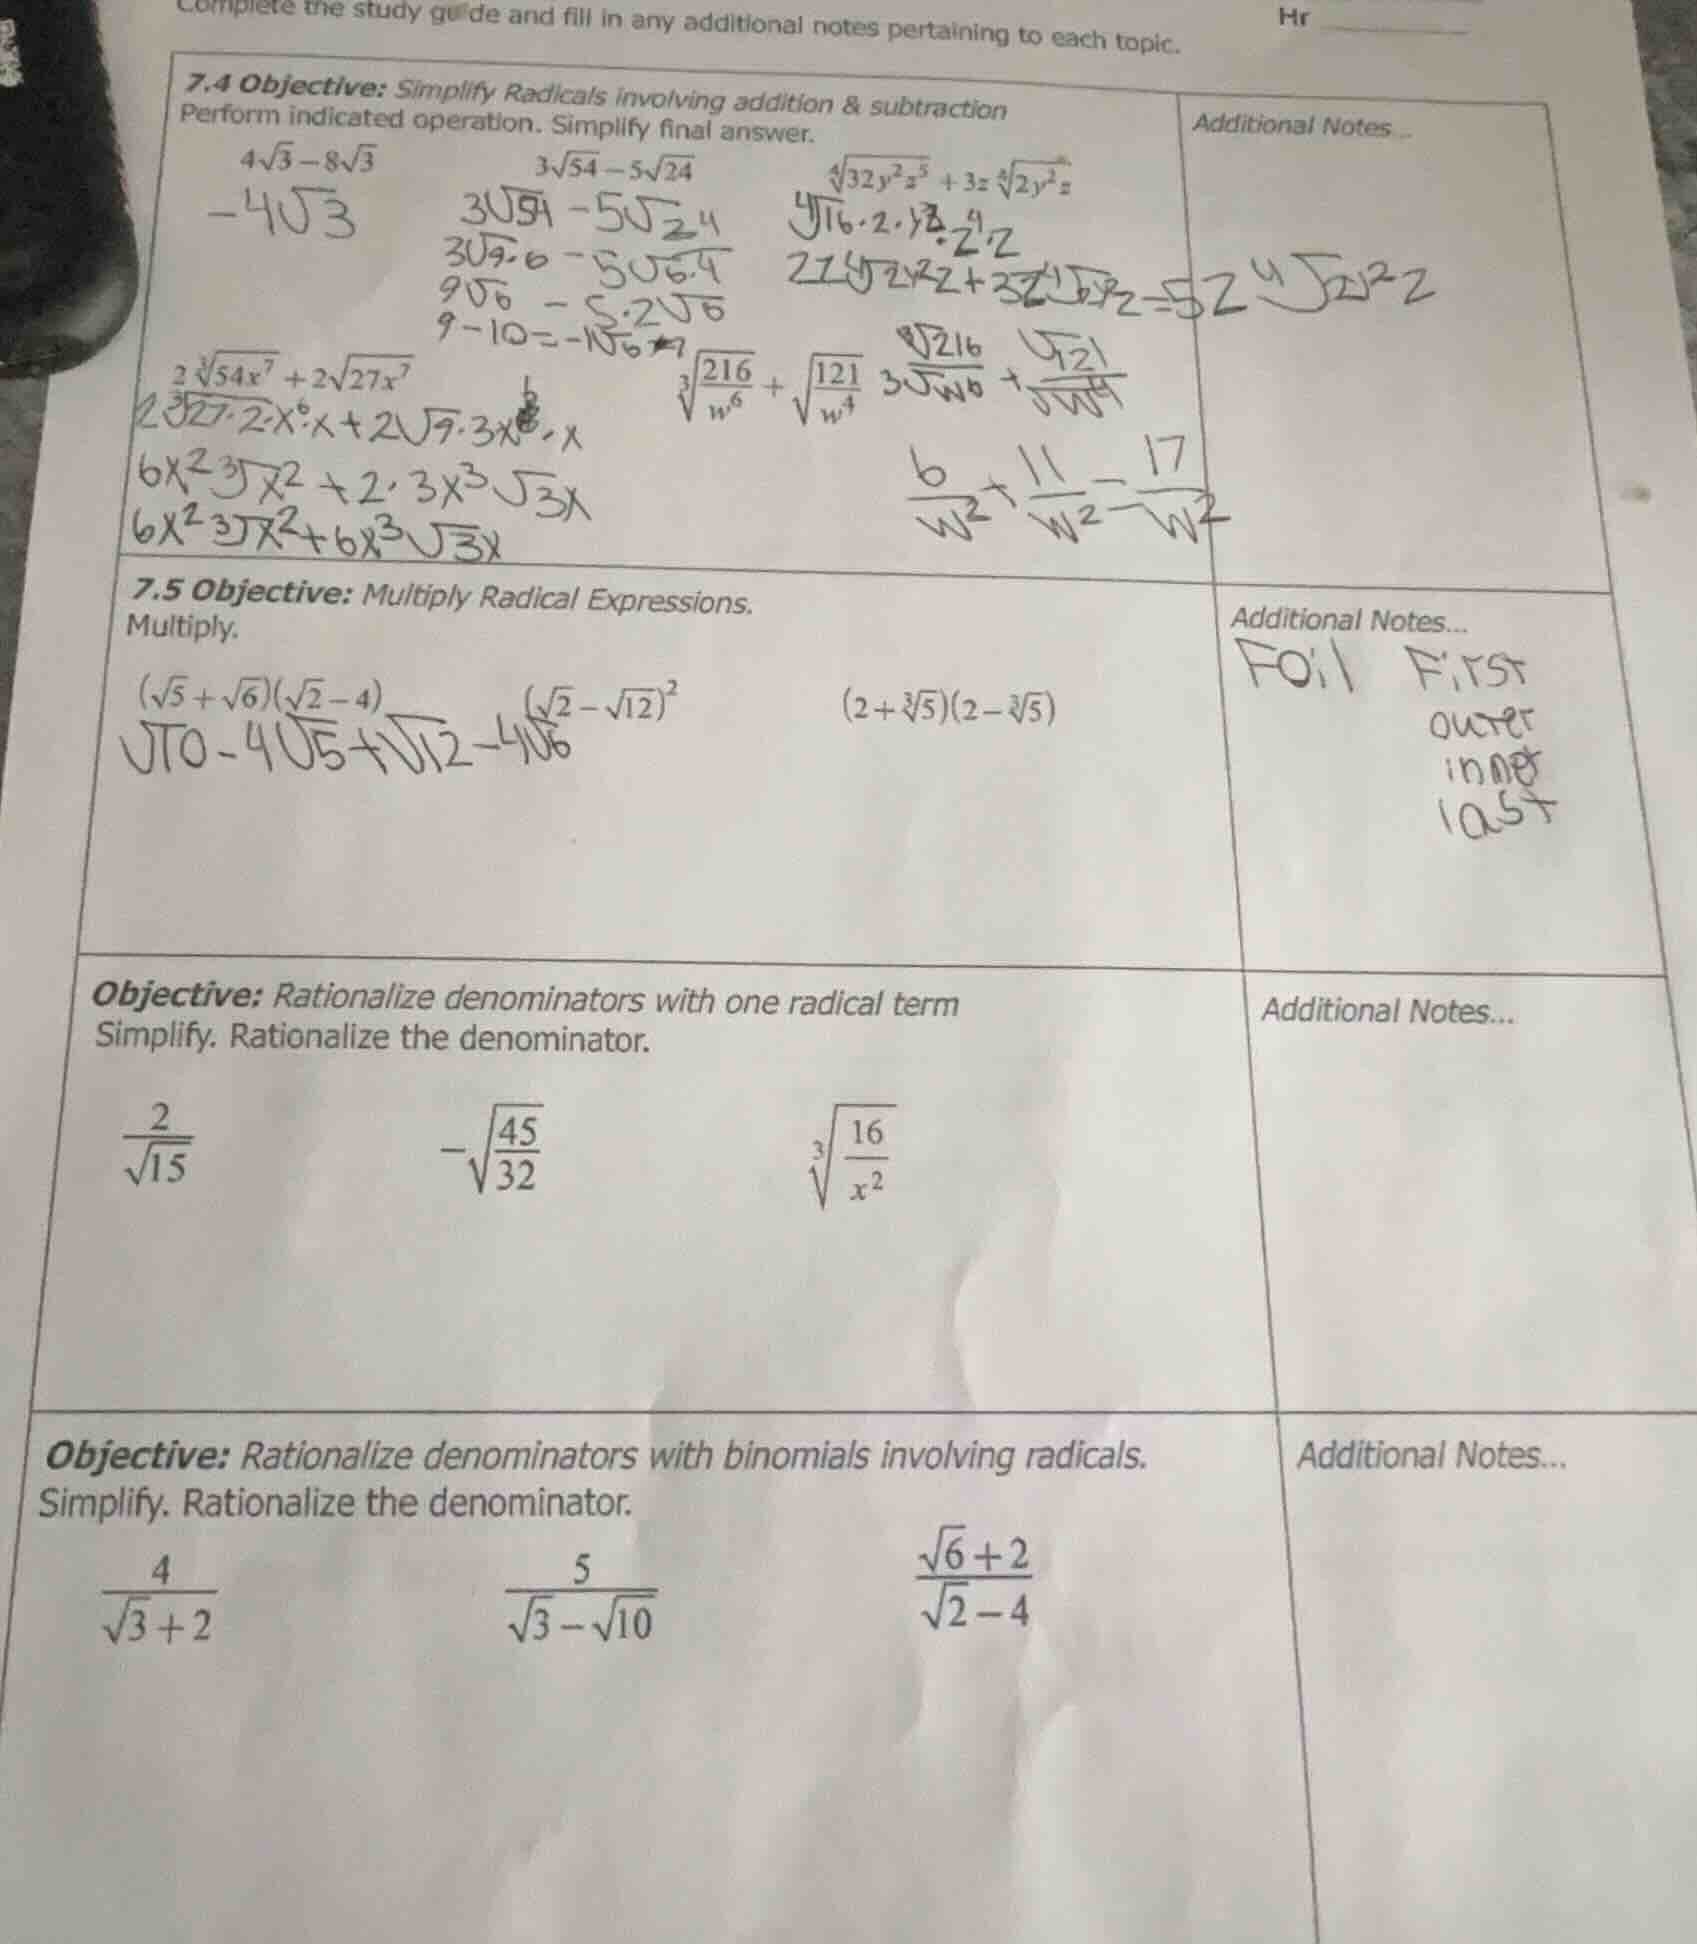 Complete the study guide and fill in any additional notes pertaining to each topic.
Hr ________
7.4 Objective: Simplify Radicals involving addition & subtraction
Perform indicated operation. Simplify final answer.
Additional Notes...
4√3 − 8√3
−4√3
3√54 − 5√24
3√54 − 5√24
3√9·6 − 5√6·4
9√6 − 5·2√6
9 − 10 = −1√6
∜32y²z⁵ + 3z∜2y²z
2z∜2y²z + 3z∜2y²z = 5z∜2y²z
2∛54x⁷ + 2√27x⁷
2∛27·2·x⁶·x + 2√9·3x⁶·x
6x²∛x² + 2·3x³√3x
6x²∛x² + 6x³√3x
∛216/w⁶ + √121/w⁴
∛216/3√w⁶ + √121/√w⁴
6/w² + 11/w² = 17/w²
7.5 Objective: Multiply Radical Expressions.
Multiply.
Additional Notes...
(√5 + √6)(√2 − 4)
√10 − 4√5 + √12 − 4√6
(√2 − √12)²
(2 + ∛5)(2 − ∛5)
Foil First
outer
inner
last
Objective: Rationalize denominators with one radical term
Simplify. Rationalize the denominator.
Additional Notes...
2/√15
−√45/32
∛16/x²
Objective: Rationalize denominators with binomials involving radicals.
Simplify. Rationalize the denominator.
Additional Notes...
4/(√3 + 2)
5/(√3 − √10)
(√6 + 2)/(√2 − 4)